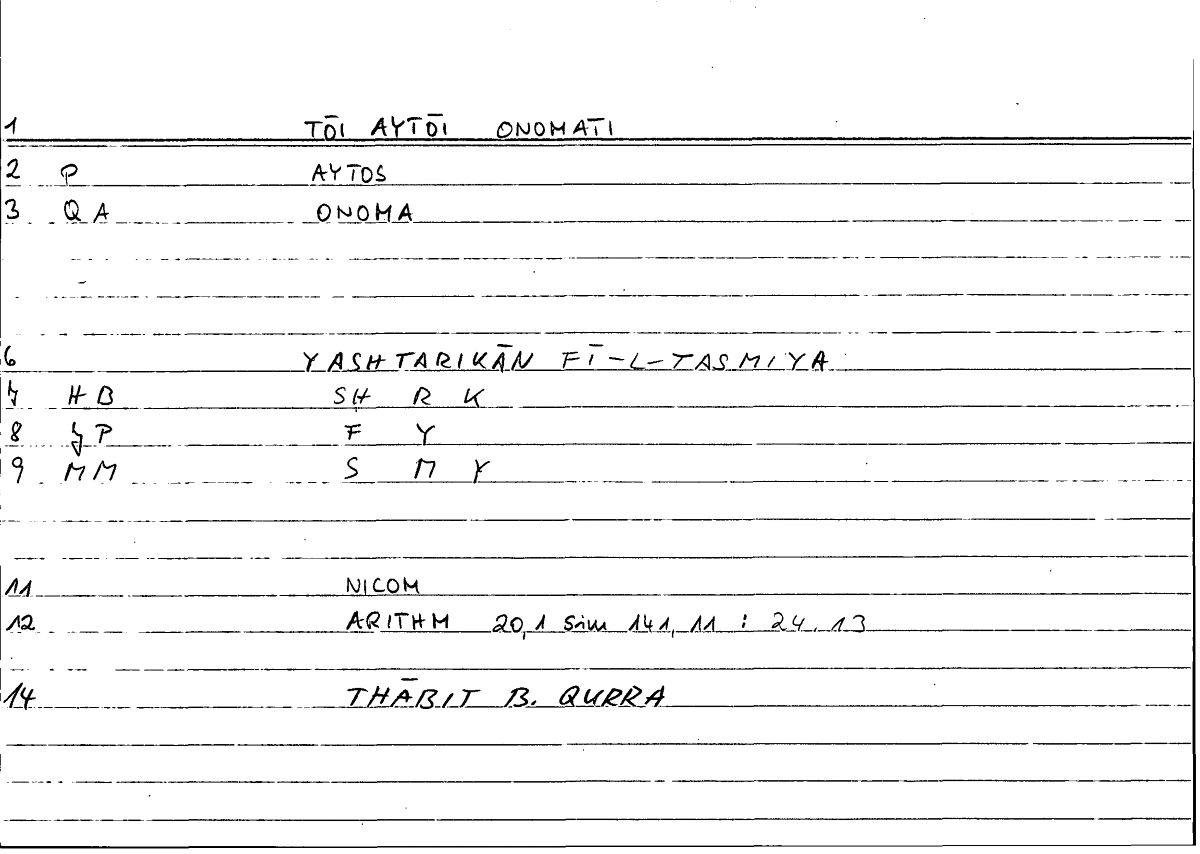 1 TŌI AYTŌI ONOMATI
2 P AYTOS
3 QA ONOMA
6 YASHTARIKĀN FĪ-L-TASMIYA
7 HB SH R K
8 JP F Y
9 MM S M Y
11 NICOM
12 ARITHM 20,1 Sim 141,11 : 24.13
14 THĀBIT B. QURRA